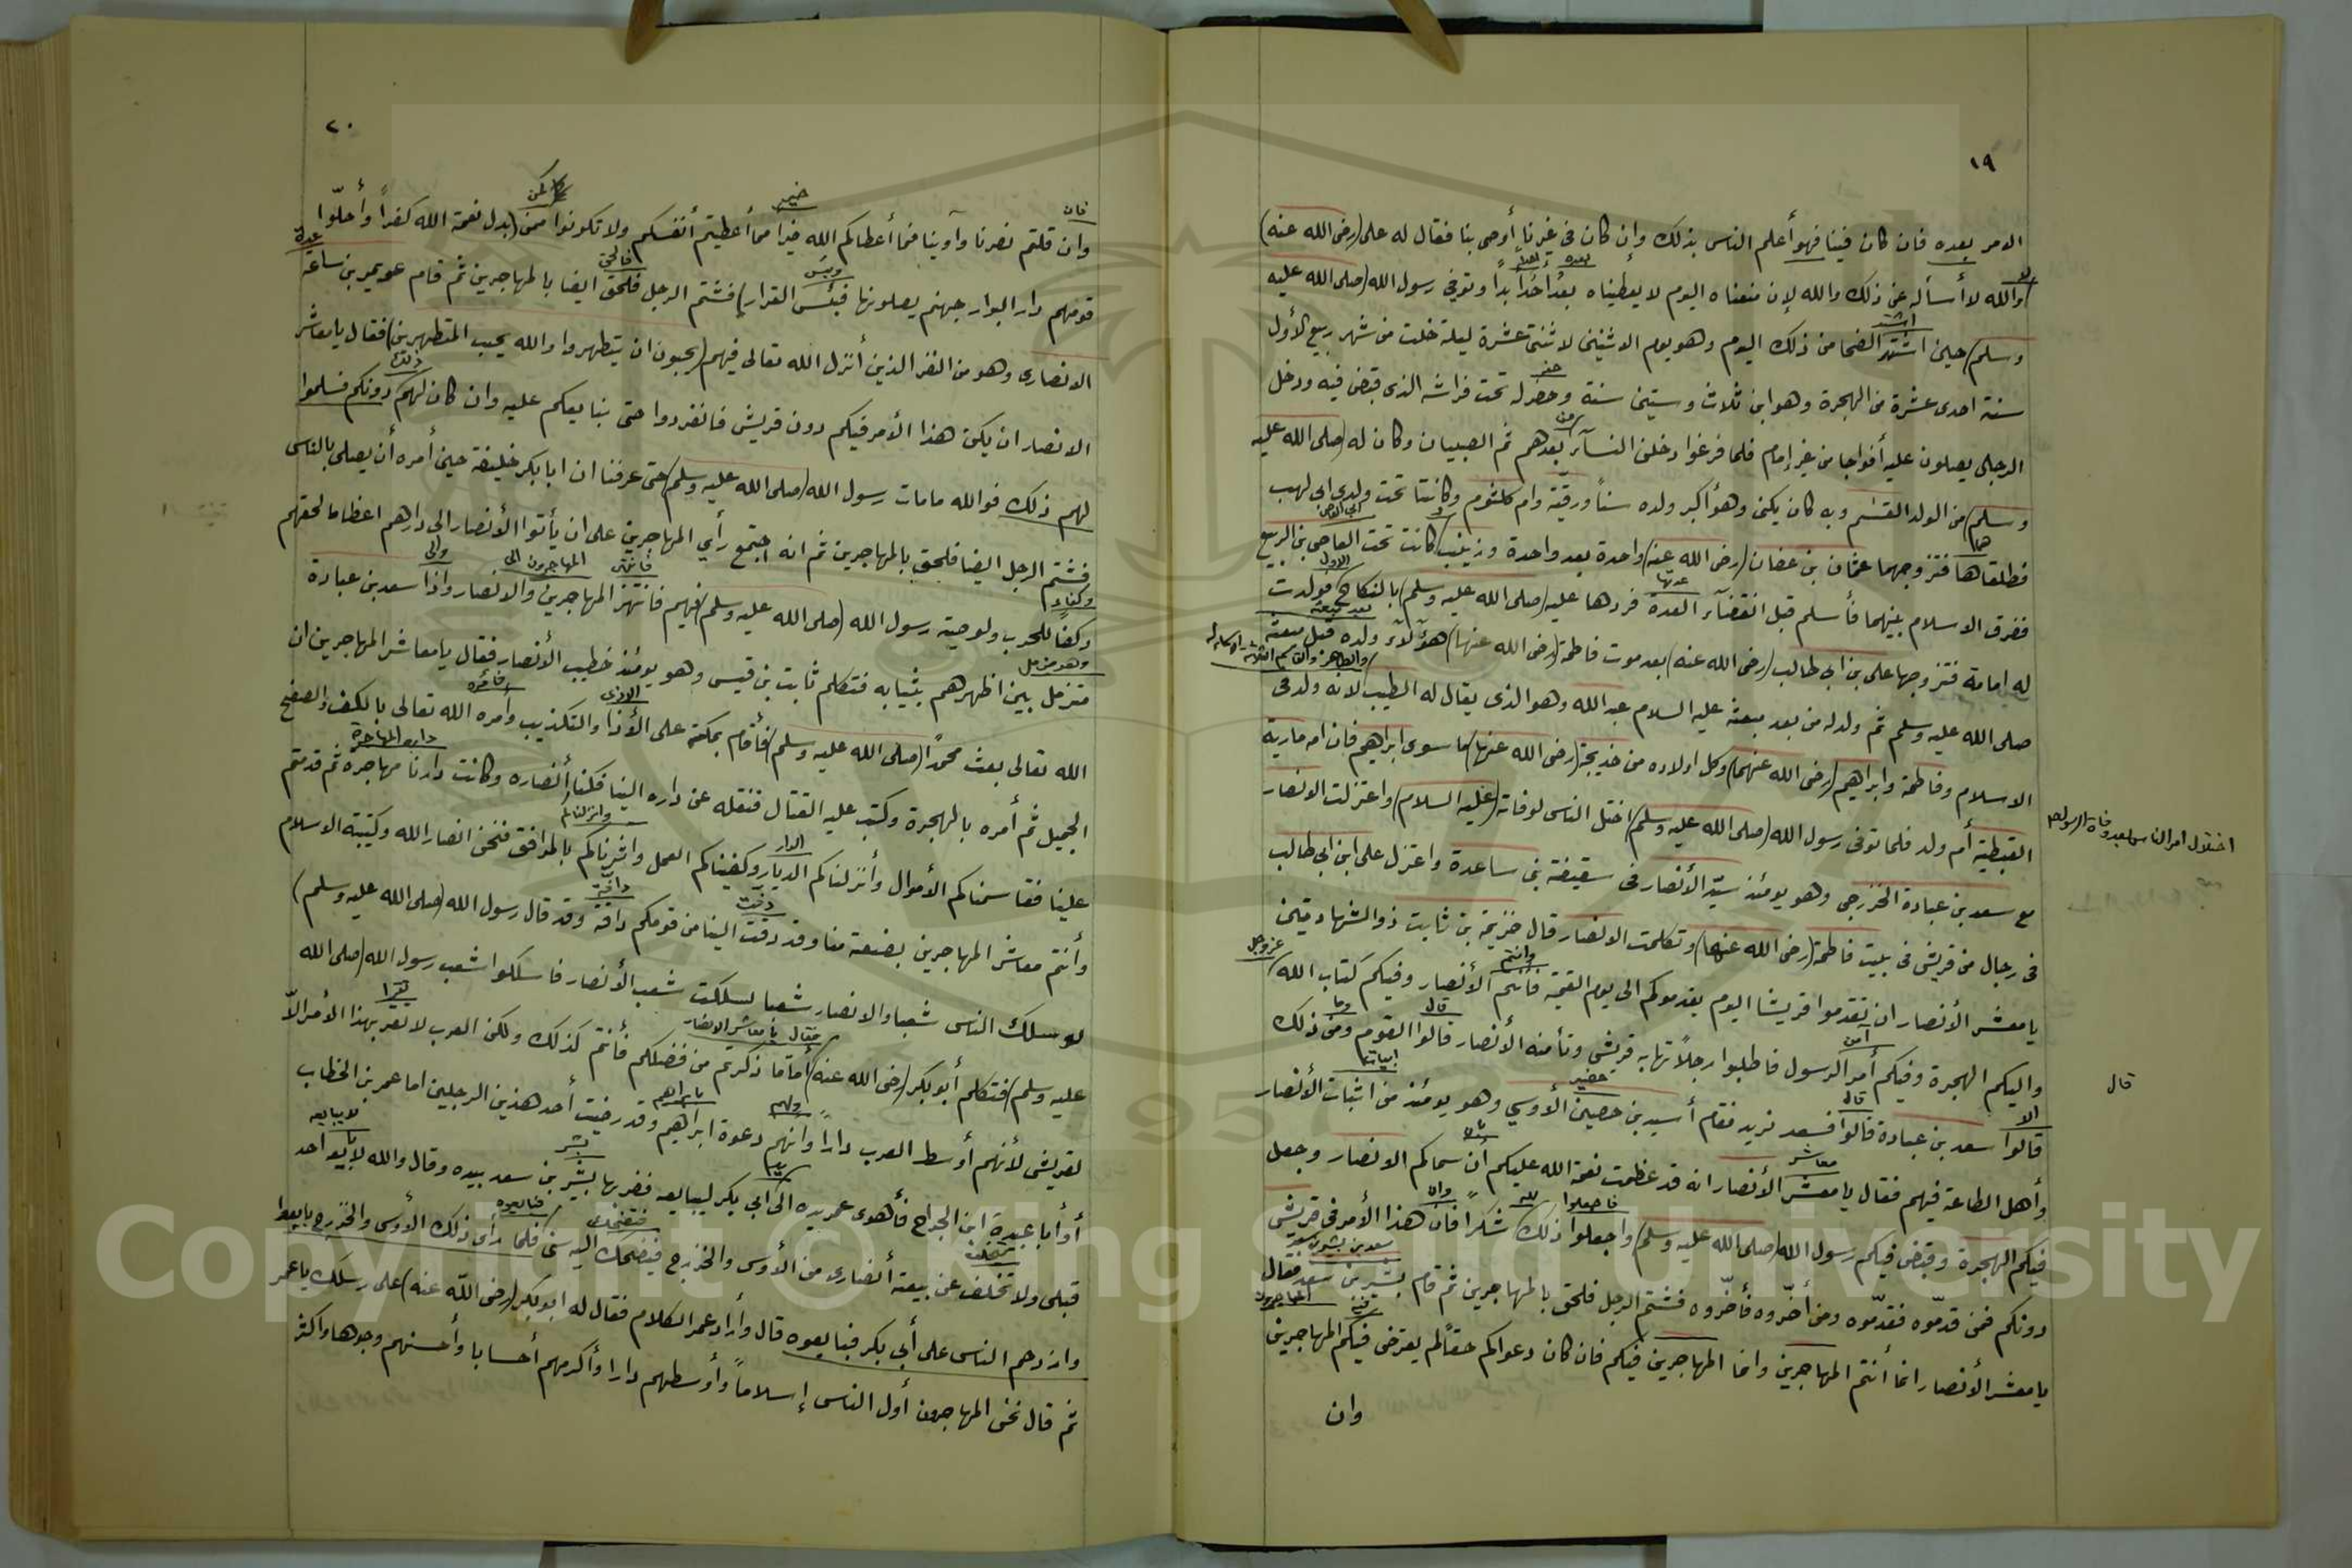 ١٩
الامر بعده فان كان فينا فهو أعلم الناس بذلك وإن كان في غيرنا أوصى بنا فقال له على (رضى الله عنه)
والله لا أسأله عن ذلك والله لإن منعناه اليوم لا يعطيناه بعد أحداً بداً وتوفي رسول الله (صلى الله عليه
وسلم) حين اشتد الضحا من ذلك اليوم وهو يوم الاثنين لاثنتى عشرة ليلة خلت من شهر ربيع الأول
سنة احدى عشرة من الهجرة وهو ابن ثلاث وستين سنة وحضر له تحت فراشه الذى قبض فيه ودخل
الرجال يصلون عليه أفواجا من غير إمام فلما فرغوا دخلن النسآء بعدهم ثم الصبيان وكان له (صلى الله عليه
وسلم) من الولد القسم وبه كان يكنى وهو أكبر ولده سناً ورقية وام كلثوم وكانتا تحت ولدى ابى لهب
فطلقاها فتزوجهما عثمان بن عفان (رضى الله عنه) واحدة بعد واحدة وزينب كانت تحت العاصى بن الربيع
ففرق الاسلام بينهما فأسلم قبل انقضآء العدة فردها عليه (صلى الله عليه وسلم) بالنكاح فولدت
له امامة فتزوجها على بن ابى طالب (رضى الله عنه) بعد موت فاطمة (رضى الله عنها) هؤلآء ولده قبل مبعثه
صلى الله عليه وسلم ثم ولد له من بعد مبعثه عليه السلام عبد الله وهو الذى يقال له الطيب لانه ولد فى
الاسلام وفاطمة وابراهيم (رضى الله عنهما) وكل اولاده من خديجة (رضى الله عنها) ما سوى ابراهيم فان امه مارية
القبطية أم ولد فلما توفى رسول الله (صلى الله عليه وسلم) اختل الناس لوفاته (عليه السلام) واعتزلت الانصار
اختلال امر الناس بعد وفاة الرسول
مع سعد بن عبادة الخزرجى وهو يومئذ سيّد الأنصار فى سقيفة بنى ساعدة واعتزل على ابن ابى طالب
فى رجال من قريش فى بيت فاطمة (رضى الله عنهما) وتكلمت الانصار قال خزيمة بن ثابت ذو الشهادتين
يا معشر الأنصار ان تقدموا قريشا اليوم يقدموكم الى يوم القيمة فأنتم الأنصار وفيكم كتاب الله
واليكم الهجرة وفيكم أمر الرسول فاطلبوا رجلاً تهابه قريش وتأمنه الأنصار قالوا القوم ومن ذلك
قال
قالوا سعد بن عبادة قالوا فسعد نريد فقام أسيد بن حصين الأوسي وهو يومئذ من اثبات الأنصار
وأهل الطاعة فيهم فقال يا معشر الأنصار انه قد عظمت نعمة الله عليكم أن سماكم الانصار وجعل
فيكم الهجرة وقبض فيكم رسول الله (صلى الله عليه وسلم) واجعلوا ذلك شكراً فان هذا الأمر فى قريش
دونكم فمن قدّموه فقدّموه ومن أخّروه فأخّروه فشتم الرجل فلحق بالمهاجرين ثم قام بشير بن سعد فقال
يا معشر الأنصار انما أنتم المهاجرين وانما المهاجرين فيكم فان كان دعواكم حقاً لم يعترض فيكم المهاجرين
وان
٢٠
وان قلتم نصرنا وآوينا فما أعطاكم الله خيرا مما أعطيتم أنفسكم ولا تكونوا ممن (بدل نعمة الله كفراً وأحلّوا
قومهم دار البوار جهنم يصلونها فبئس القرار) فشتم الرجل فلحق ايضا بالمهاجرين ثم قام عويمر بن ساعة
الانصارى وهو من النفر الذين أنزل الله تعالى فيهم (يحبون ان يتطهروا والله يحب المتطهرين) فقال يا معاشر
الانصار ان يكن هذا الأمر فيكم دون قريش فانفردوا حتى نبايعكم عليه وان كان لهم دونكم فسلموا
لهم ذلك فوالله مامات رسول الله (صلى الله عليه وسلم) حتى عرفنا ان ابا بكر خليفة حين أمره أن يصلى بالناس
فشتم الرجل ايضا فلحق بالمهاجرين ثم انه اجتمع رأي المهاجرين على ان يأتوا الأنصار الى دارهم اعظاما لحقهم
وكفا للحرب ولوصية رسول الله (صلى الله عليه وسلم) فيهم فانتهز المهاجرين والانصار واذا سعد بن عبادة
متزمل بين اظهرهم بثيابه فتكلم ثابت بن قيس وهو يومئذ خطيب الأنصار فقال يا معاشر المهاجرين ان
الله تعالى بعث محمداً (صلى الله عليه وسلم) فأقام بمكة على الأذا والتكذيب وأمره الله تعالى بالكف والصفح
الجميل ثم أمره بالهجرة وكتب عليه القتال فنقله عن داره الينا فكنا أنصاره وكانت دارنا مهاجره ثم قدمتم
علينا فقاسمناكم الأموال وأنزلناكم الديار وكفيناكم العمل واثرناكم بالمرافق فنحن انصار الله وكتيبة الاسلام
وأنتم معاشر المهاجرين بضعة منا وقد دفت الينا من قومكم دافة وقد قال رسول الله (صلى الله عليه وسلم)
لو سلك الناس شعبا والانصار شعبا لسلكت شعب الأنصار فاسلكوا شعب رسول الله (صلى الله
عليه وسلم) فتكلم أبو بكر (رضى الله عنه) أما ما ذكرتم من فضلكم فأنتم كذلك ولكن العرب لا تقر بهذا الأمر الّا
لقريش لأنهم أوسط العرب داراً وانهم دعوة ابراهيم وقد رضيت أحد هذين الرجلين اما عمر بن الخطاب
أو أبا عبيدة ابن الجراح فأهوى عمر يده الى ابى بكر ليبايعه فضربها بشير بن سعد بيده وقال والله لا يبايعه أحد
قبلى ولا تخلف عن بيعة أنصارى من الأوس والخزرج فيضحك اليه شئ فلما رأى ذلك الأوس والخزرج بايعوا
وازدحم الناس على أبى بكر فبايعوه قال وأراد عمر الكلام فقال له ابو بكر (رضى الله عنه) على رسلك يا عمر
ثم قال نحن المهاجرون أول الناس إسلاماً وأوسطهم دارا وأكرمهم أحسابا وأحسنهم وجوها واكثر
Copyright © King Saud University